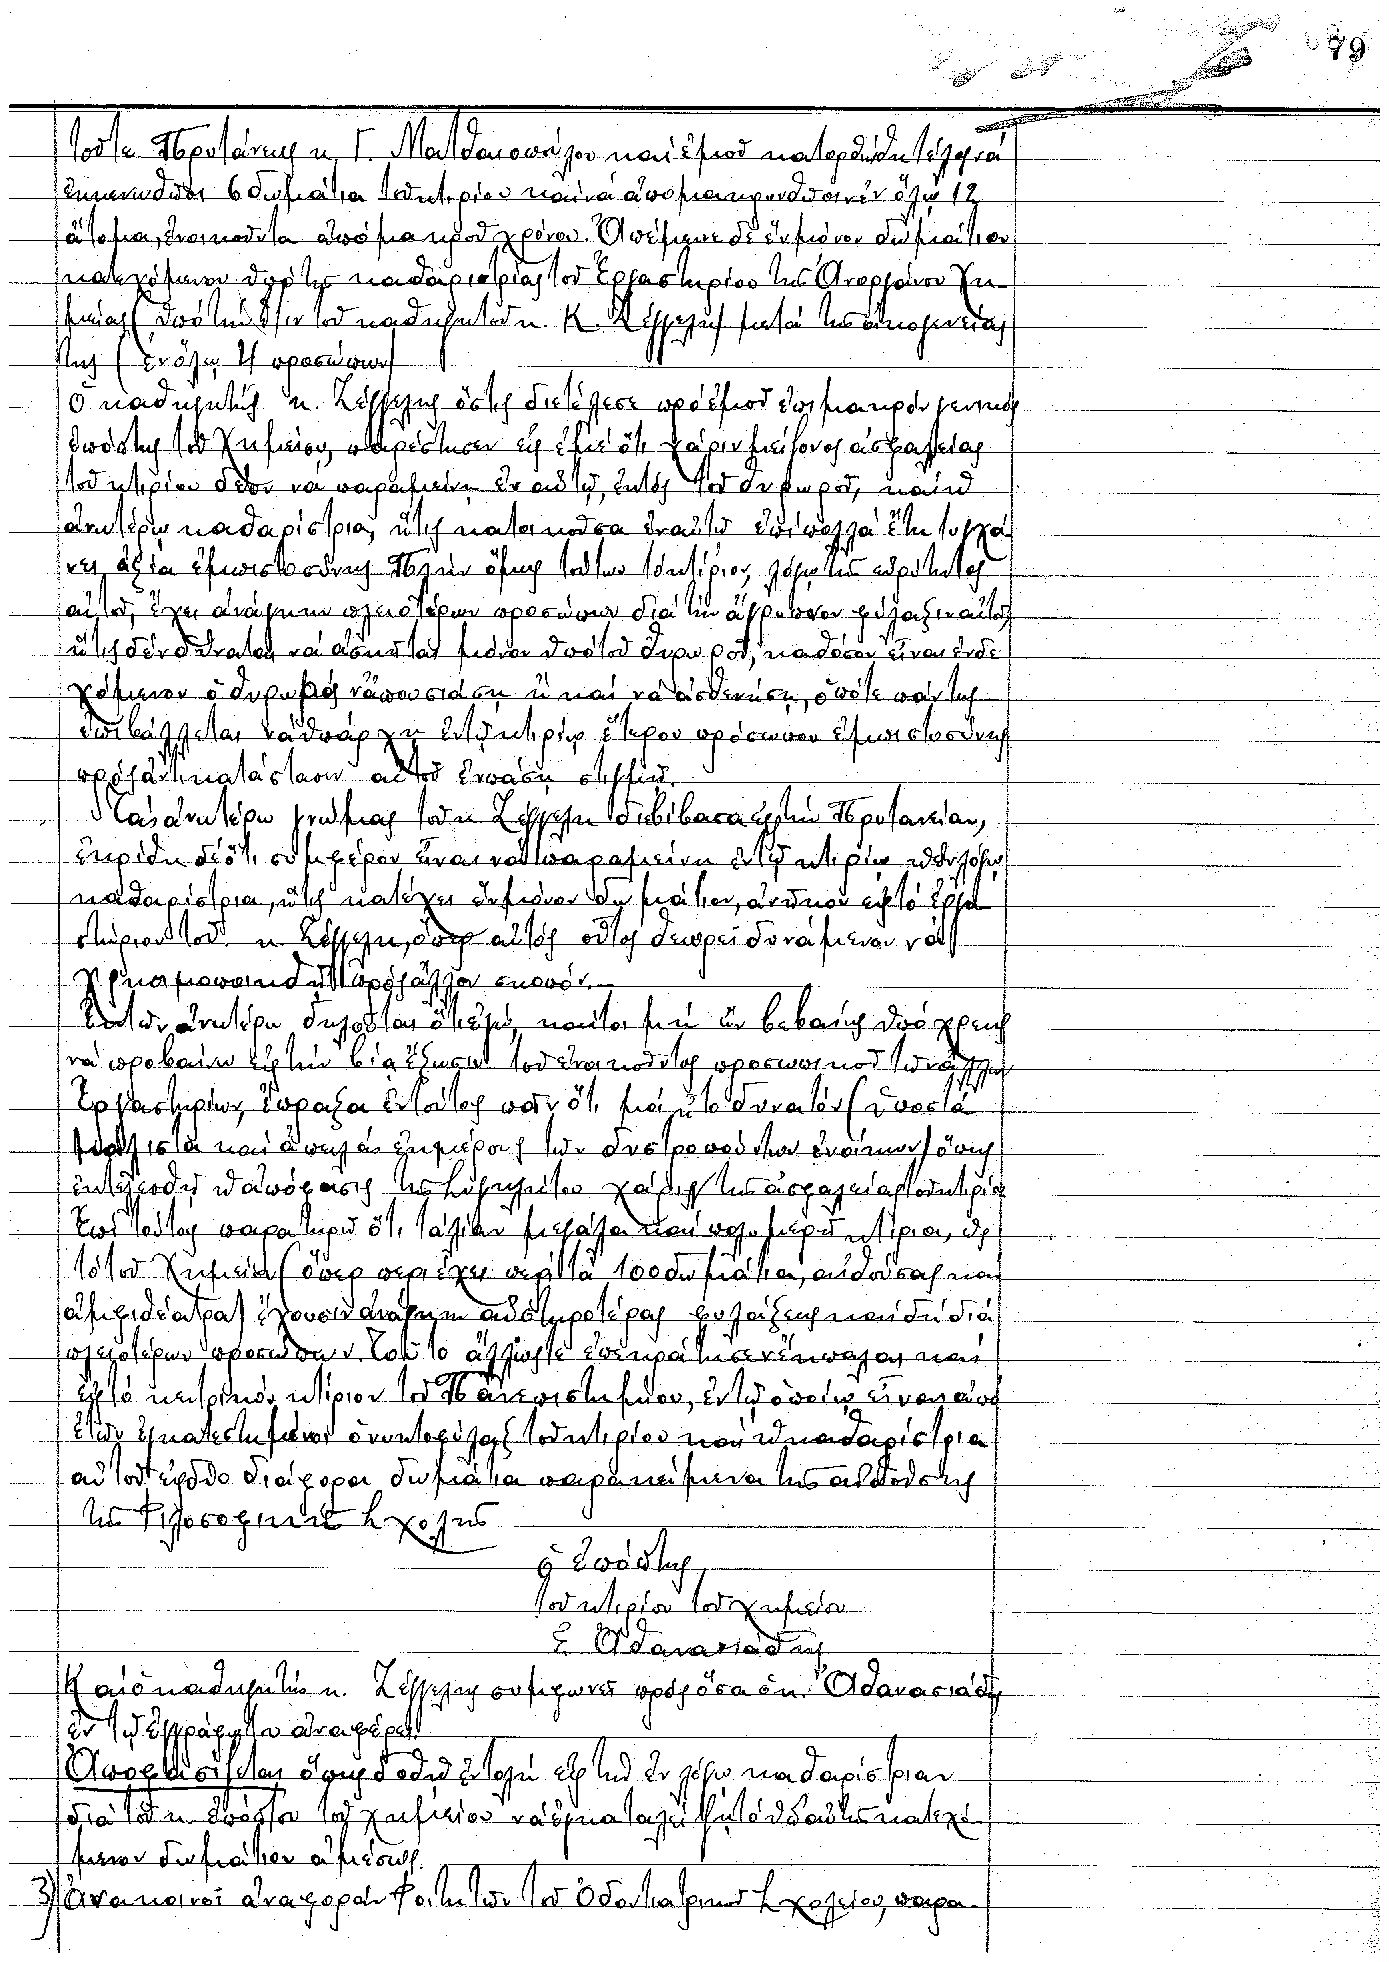 79
τοῦ κ. Πρυτάνεως κ. Γ. Ματθαιοπούλου καὶ ἐμοῦ κατορθώθη τέλος νὰ
ἐκκενωθῶσι 6 δωμάτια τοῦ κτιρίου καὶ νὰ ἀπομακρυνθῶσιν ἐν ὅλῳ 12
ἄτομα, ἐνοικοῦντα ἀπὸ μακροῦ χρόνου. Ἀπέμεινε δὲ ἓν μόνον δωμάτιον
κατεχόμενον ὑπὸ τῆς καθαριστρίας τοῦ Ἐργαστηρίου τῆς Ἀνοργάνου Χη-
μείας (ὑπὸ τὴν δ/σιν τοῦ καθηγητοῦ κ. Κ. Ζέγγελη) μετὰ τῆς οἰκογενείας
της (ἐν ὅλῳ 4 προσώπων)
Ὁ καθηγητὴς κ. Ζέγγελης ὅστις διετέλεσε πρὸ ἐμοῦ ἐπὶ μακρὸν γενικὸς
ἐπόπτης τοῦ Χημείου, παρέστησεν εἰς ἐμὲ ὅτι χάριν μείζονος ἀσφαλείας
τοῦ κτιρίου δέον νὰ παραμείνῃ ἐν αὐτῷ, ἐκτὸς τοῦ θυρωροῦ, καὶ ἡ
ἀνωτέρω καθαρίστρια, ἥτις κατοικοῦσα ἐν αὐτῷ ἐπὶ πολλὰ ἔτη τυγχά
νει ἀξία ἐμπιστοσύνης. Πλὴν ὅμως τούτου τὸ κτίριον, λόγῳ τῆς εὐρύτητος
αὐτοῦ, ἔχει ἀνάγκην πλειοτέρων προσώπων διὰ τὴν ἄγρυπνον φύλαξιν αὐτοῦ,
ἥτις δὲν δύναται νὰ ἀσκῆται μόνον ὑπὸ τοῦ θυρωροῦ, καθόσον εἶναι ἐνδε
χόμενον ὁ θυρωρὸς νὰ ἀπουσιάσῃ ἢ καὶ νὰ ἀσθενήσῃ, ὁπότε πάντως
ἐπιβάλλεται νὰ ὑπάρχῃ ἐν τῷ κτιρίῳ ἕτερον πρόσωπον ἐμπιστοσύνης
πρὸς ἀντικατάστασιν αὐτοῦ ἐν πάσῃ στιγμῇ.
Τὰς ἀνωτέρω γνώμας τοῦ κ. Ζέγγελη διεβίβασα εἰς τὴν Πρυτανείαν,
ἐκρίθη δὲ ὅτι συμφέρον εἶναι νὰ παραμείνῃ ἐν τῷ κτιρίῳ ἡ ἐν λόγῳ
καθαρίστρια, ἥτις κατέχει ἓν μόνον δωμάτιον, ἀνῆκον εἰς τὸ Ἐργα
στήριον τοῦ κ. Ζέγγελη, ὅπερ αὐτὸς οὗτος θεωρεῖ δυνάμενον νὰ
χρησιμοποιηθῇ πρὸς ἄλλον σκοπόν.
Ἐκ τῶν ἀνωτέρω δηλοῦται ὅτι ἐγώ, καίτοι μὴ ὢν βεβαίως ὑπόχρεως
νὰ προβαίνω εἰς τὴν βίᾳ ἔξωσιν τοῦ ἐνοικοῦντος προσωπικοῦ τῶν ἄλλων
Ἐργαστηρίων, ἔπραξα ἐν τούτοις πᾶν ὅ,τι μοὶ ἦτο δυνατὸν (ὑποστὰ
μάλιστα καὶ ἀπειλὰς ἐκ μέρους τῶν δυστροπούντων ἐνοίκων) ὅπως
ἐκτελεσθῇ ἡ ἀπόφασις τῆς Συγκλήτου χάριν τῆς ἀσφαλείας τοῦ κτιρίου
Ἐπὶ τούτοις παρατηρῶ ὅτι τὰ λίαν μεγάλα καὶ πολυμερῆ κτίρια, ὡς
τὸ τοῦ Χημείου (ὅπερ περιέχει περὶ τὰ 100 δωμάτια, αἰθούσας καὶ
ἀμφιθέατρα) ἔχουσιν ἀνάγκην αὐστηροτέρας φυλάξεως καὶ δὴ διὰ
πλειοτέρων προσώπων. Τοῦτο ἄλλωστε ἐπεκράτησεν ἔκπαλαι καὶ
εἰς τὸ κεντρικὸν κτίριον τοῦ Πανεπιστημίου, ἐν τῷ ὁποίῳ εἶναι ἀπὸ
ἐτῶν ἐγκατεστημένοι ὁ νυκτοφύλαξ τοῦ κτιρίου καὶ ἡ καθαρίστρια
αὐτοῦ εἰς δύο διάφορα δωμάτια παρακείμενα τῆς αἰθούσης
τῆς Φιλοσοφικῆς Σχολῆς
ὁ Ἐπόπτης
τοῦ κτιρίου τοῦ χημείου
Γ. Ἀθανασιάδης
Καὶ ὁ καθηγητὴς κ. Ζέγγελης συμφωνεῖ πρὸς ὅσα ὁ κ. Ἀθανασιάδης
ἐν τῷ ἐγγράφῳ του ἀναφέρει.
Ἀποφασίζεται ὅπως δοθῇ ἐντολὴ εἰς τὴν ἐν λόγῳ καθαρίστριαν
διὰ τοῦ κ. ἐπόπτου τοῦ χημείου νὰ ἐγκαταλείψῃ τὸ ὑπ' αὐτῆς κατεχό
μενον δωμάτιον ἀμέσως.
3) Ἀνακοινοῖ ἀναφορὰν Φοιτητῶν τοῦ Ὀδοντιατρικοῦ Σχολείου, παρα-